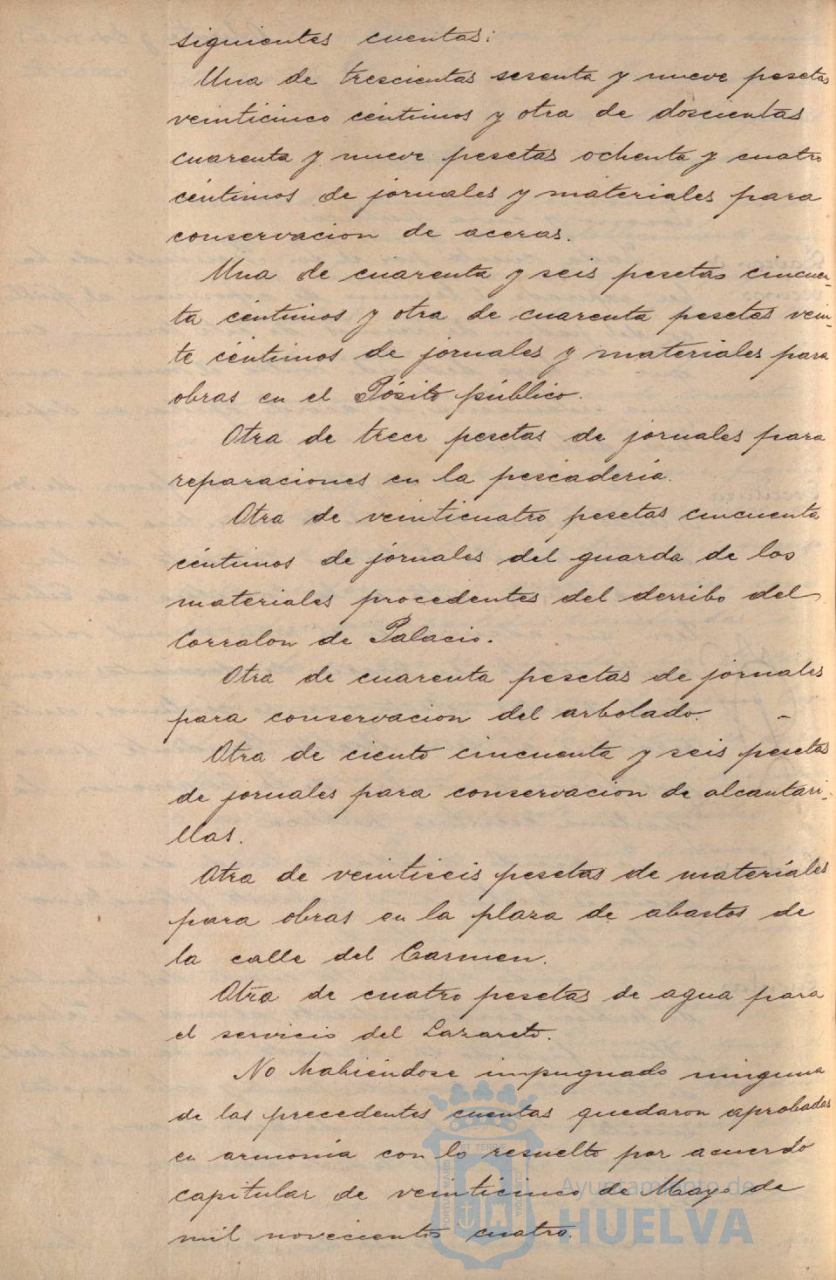 siguientes cuentas:
Una de trescientas sesenta y nueve pesetas
veinticinco céntimos y otra de doscientas
cuarenta y nueve pesetas ochenta y cuatro
céntimos de jornales y materiales para
conservacion de aceras.
Una de cuarenta y seis pesetas cincuen-
ta céntimos y otra de cuarenta pesetas vein-
te céntimos de jornales y materiales para
obras en el Pósito público.
Otra de trece pesetas de jornales para
reparaciones en la pescadería.
Otra de veinticuatro pesetas cincuenta
céntimos de jornales del guarda de los
materiales procedentes del derribo del
Corralon de Palacio.
Otra de cuarenta pesetas de jornales
para conservacion del arbolado. -
Otra de ciento cincuenta y seis pesetas
de jornales para conservacion de alcantari-
llas.
Otra de veintiseis pesetas de materiales
para obras en la plaza de abastos de
la calle del Carmen.
Otra de cuatro pesetas de agua para
el servicio del Lazareto.
No habiéndose impugnado ninguna
de las precedentes cuentas quedaron aprobadas
en armonía con lo resuelto por acuerdo
capitular de veinticinco de Mayo de
mil novecientos cuatro.
Ayuntamiento de
HUELVA